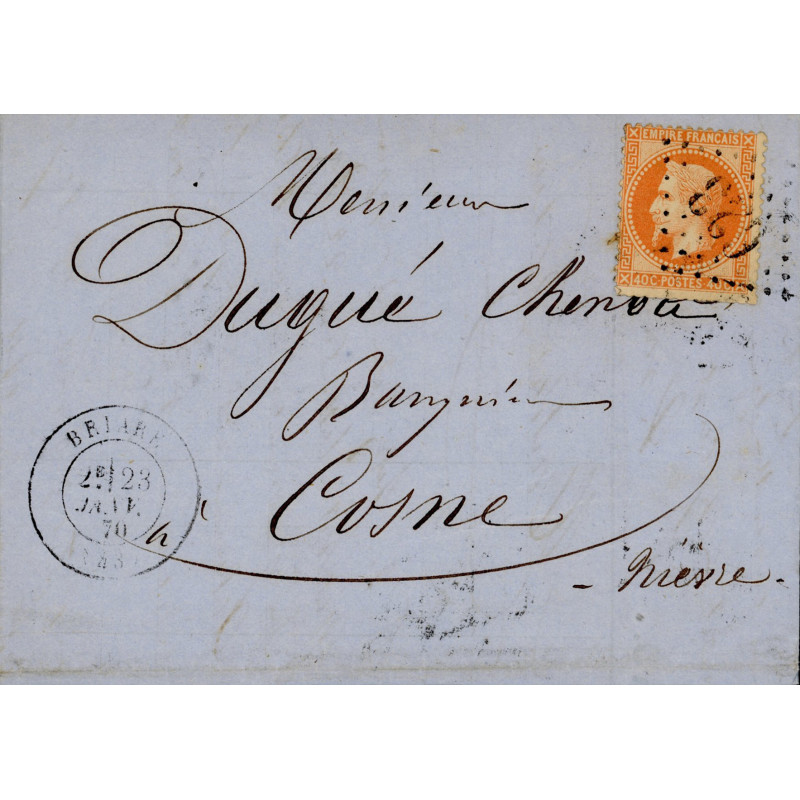 EMPIRE FRANÇAIS
40C POSTES 40C
Monsieur
Dugué
Banquier
à Cosne
- Nièvre -
BRIARE
2E 23
JANV.
70
(43)